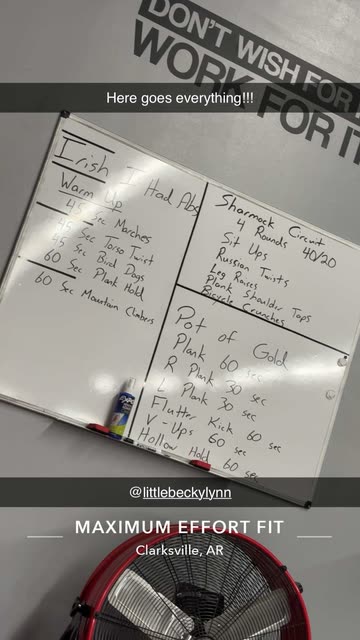 DON'T WISH FOR IT
WORK FOR IT
Here goes everything!!!
Irish I Had Abs
Warm Up
45 Sec Marches
45 Sec Torso Twist
45 Sec Bird Dogs
60 Sec Plank Hold
60 Sec Mountain Climbers
Sharmock Circuit
4 Rounds 40/20
Sit Ups
Russian Twists
Leg Raises
Plank Shoulder Taps
Bicycle Crunches
Pot of Gold
Plank 60 sec
R Plank 30 sec
L Plank 30 sec
Flutter Kick 60 sec
V-Ups 60 sec
Hollow Hold 60 sec
EXPO
@littlebeckylynn
MAXIMUM EFFORT FIT
Clarksville, AR